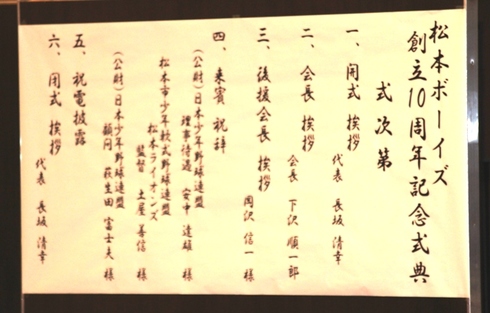 松本ボーイズ
創立10周年記念式典
式次第
一、開式 挨拶
代表 長坂 清幸
二、会長 挨拶
会長 下沢 順一郎
三、後援会長 挨拶
岡沢 信一 様
四、来賓 祝辞
(公財)日本少年野球連盟
理事待遇 安中 達雄 様
松本市少年軟式野球連盟
松本ライオンズ
監督 土屋 善信 様
(公財)日本少年野球連盟
顧問 萩生田 富士夫 様
五、祝電披露
六、閉式 挨拶
代表 長坂 清幸